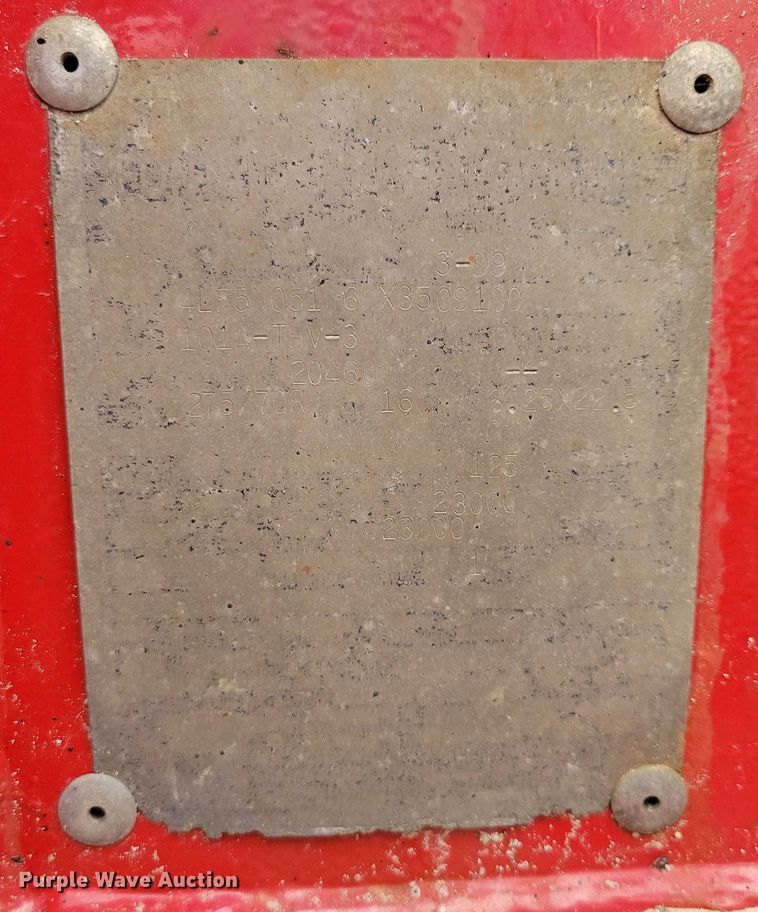 3-99
4LF5N051 6 X3509100
101A-THV-3
20460 --
275/70R 16 8.25X22.5
125
23000
23000
1
Purple Wave Auction